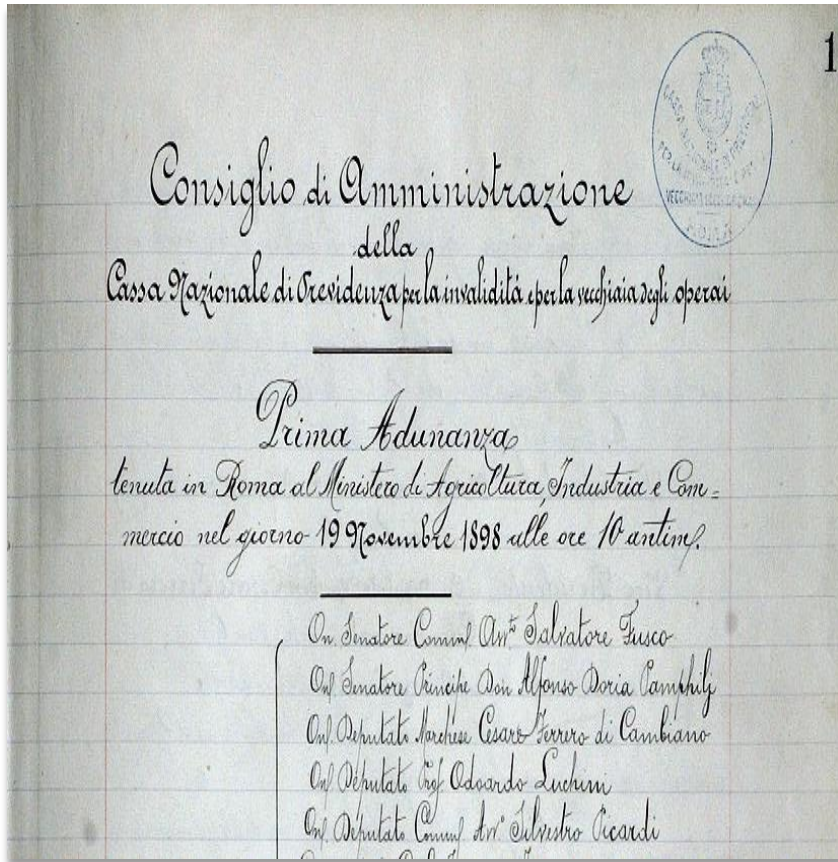 1
CASSA NAZIONALE DI PREVIDENZA
PER LA INVALIDITÀ E PER LA
VECCHIAIA DEGLI OPERAI
ROMA
Consiglio di Amministrazione
della
Cassa Nazionale di Previdenza per la invalidità e per la vecchiaia degli operai
Prima Adunanza
tenuta in Roma al Ministero di Agricoltura, Industria e Com=
mercio nel giorno 19 Novembre 1898 alle ore 10 antim.
On. Senatore Comm. Avv.to Salvatore Fusco
On. Senatore Principe Don Alfonso Doria Pamphilj
On. Deputato Marchese Cesare Ferrero di Cambiano
On. Deputato Prof. Odoardo Luchini
On. Deputato Comm. Avv.o Silvestro Picardi